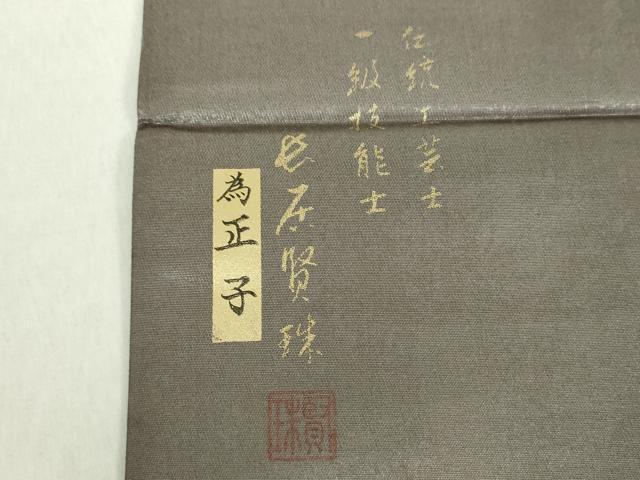 伝統工芸士
一級技能士
長居賢珠
為正子
賢珠